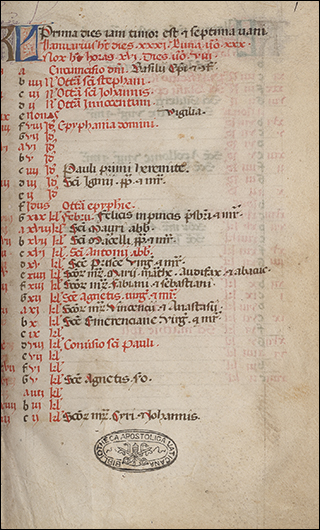 Prima dies iani timor est et septima uani
Ianuarius ht dies xxxi luna uo xxx
Nox ht horas xvi dies uo viii
a Circumcisio dni Basilii epi et
b iiii N Octa sci stephani
c iii N Octa sci Johannis
d ii N Octa innocentum
e nonas Vigilia
f viii Id Epyphania domini
g vii Id
a vi Id
b v Id
c iiii Id Pauli primi heremite
d iii Id Sci Igini pp et mr
e ii Id
f Idus Octa epyphie
g xix kl febru felicis inpincis prbri et mr
a xviii kl Sci Mauri abb
b xvii kl Sci Marcelli pp et mr
c xvi kl Sci Antonii abb
d xv kl See Prisce uirg et mr
e xiiii kl Scor mr Marii marthe Audifax et abacuc
f xiii kl Scor mr fabiani et sebastiani
g xii kl Sce agnetis uirg et mr
a xi kl Scor mr uincencii et Anastasii
b x kl Sce Emerenciane uirg et mr
c ix kl
d viii kl Conuersio sci pauli
e vii kl
f vi kl
g v kl Sce Agnetis so
a iiii kl
b iii kl
c ii kl Scor mr Cyri et iohannis
BIBLIOTHECA APOSTOLICA VATICANA